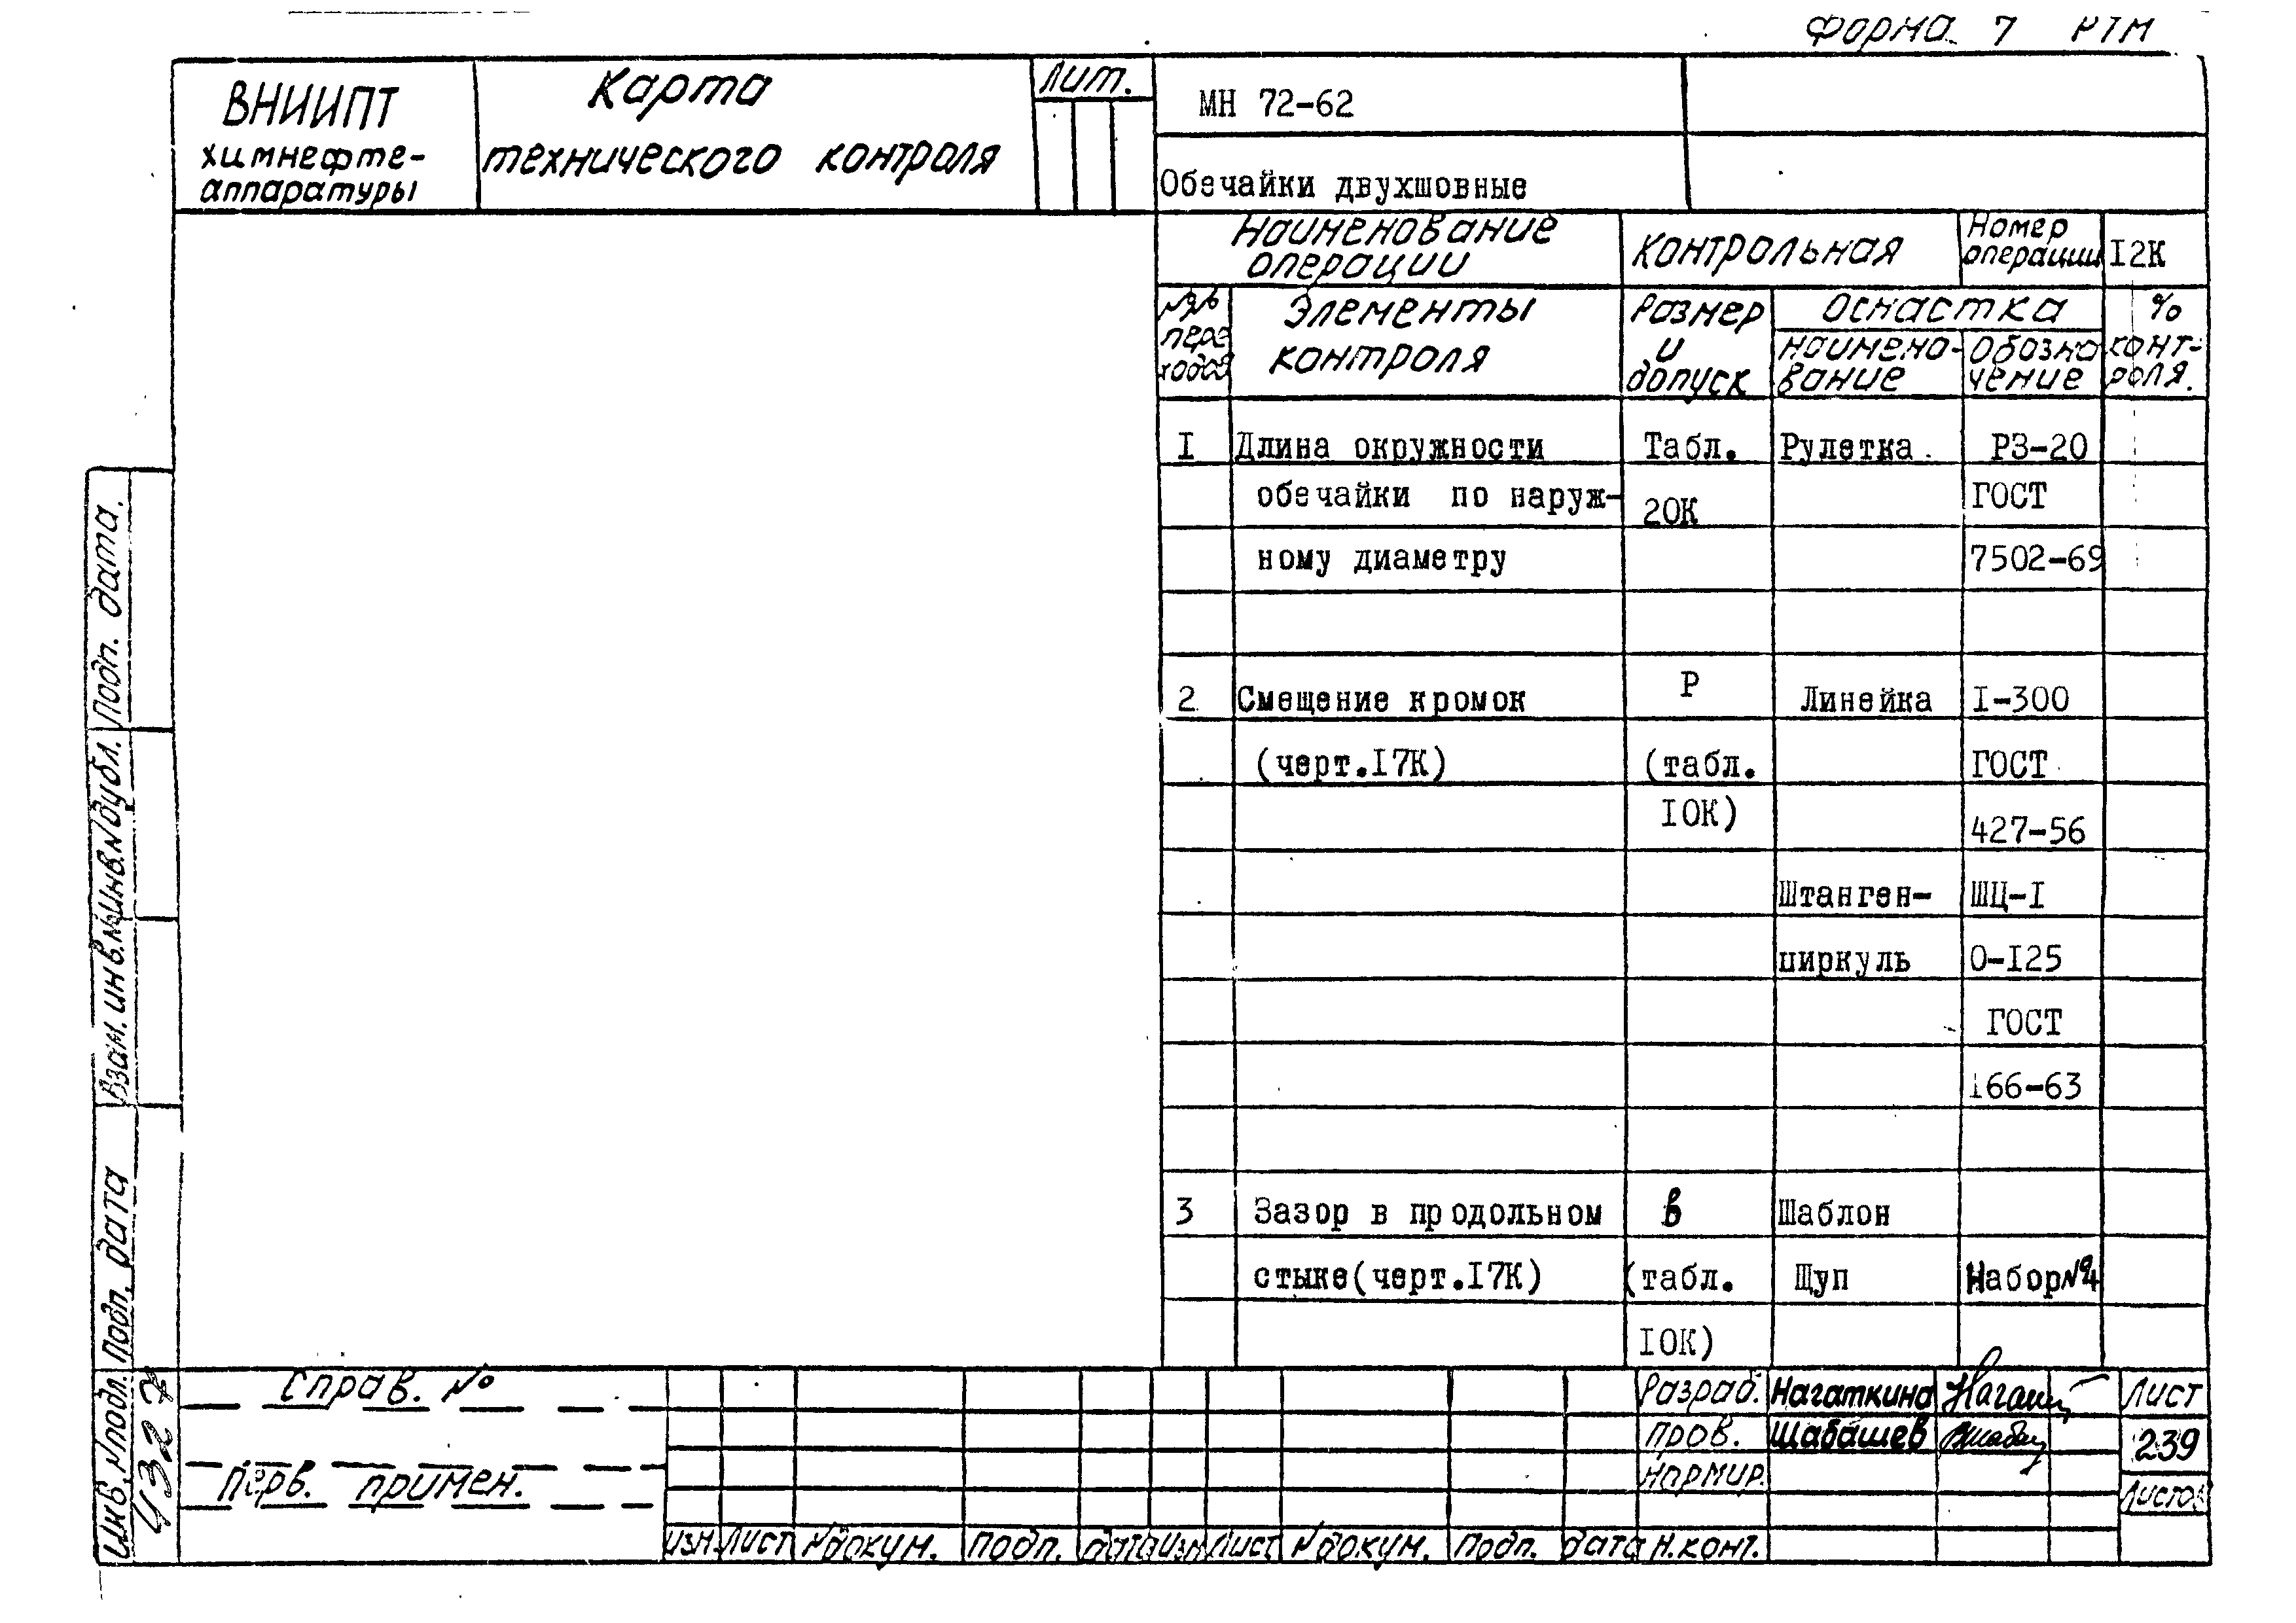 Форма 7 РТМ
ВНИИПТ
химнефте-
аппаратуры
Карта
технического контроля
Лит.
МН 72-62
Обечайки двухшовные
Наименование
операции
Контрольная
Номер
операции
I2К
№№
пере
ходов
Элементы
контроля
Размер
и
допуск
Оснастка
Наимено-
вание
Обозна
чение
%
конт-
роля.
I Длина окружности Табл. Рулетка РЗ-20
обечайки по наруж- 20К ГОСТ
ному диаметру 7502-69
2 Смещение кромок Р Линейка I-300
(черт.I7К) (табл. ГОСТ
I0К) 427-56
Штанген- ШЦ-I
циркуль 0-I25
ГОСТ
166-63
3 Зазор в продольном в Шаблон
стыке(черт.I7К) (табл. Щуп Набор№4
I0К)
Подп. дата.
Инв.№дубл.
Взам.инв.№
Подп. дата
Инв.№подл.
4327
Справ. №
Перв. примен.
Изм. Лист №докум. Подп. Дата Изм Лист №докум. Подп. Дата
Разраб. Нагаткина
Пров. Шабашев
Нормир.
Н.конт.
Лист
239
Листов